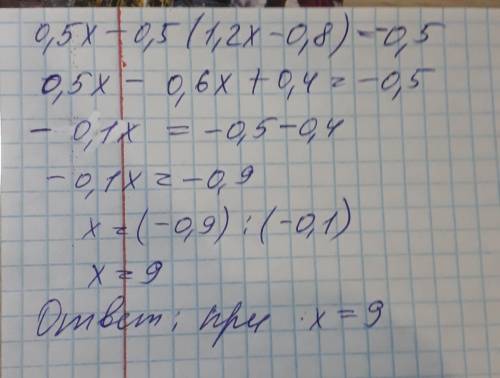 0,5x - 0,5 (1,2x - 0,8) = -0,5
0,5x - 0,6x + 0,4 = -0,5
- 0,1x = -0,5 - 0,4
- 0,1x = -0,9
x = (-0,9) : (-0,1)
x = 9
Ответ: при x = 9